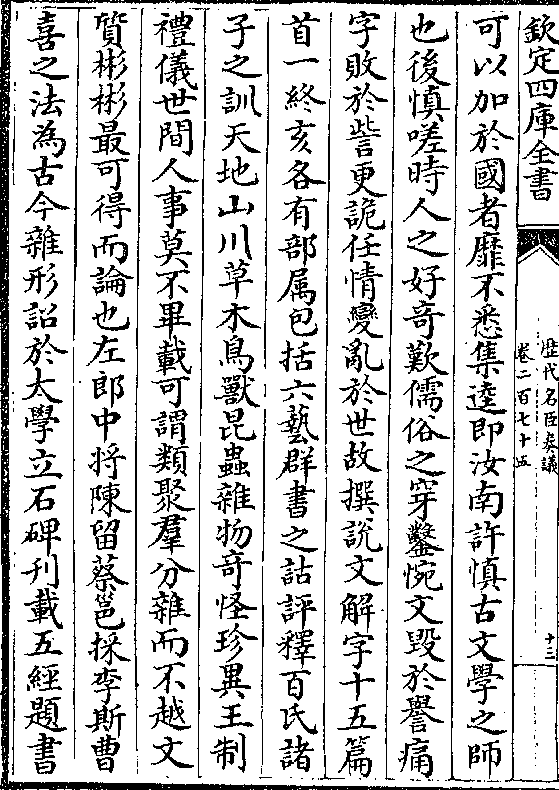 欽定四庫全書
歷代名臣奏議
卷二百七十五
十三
可以加於國者靡不悉集逵即汝南許慎古文學之師
也後慎嗟時人之好奇歎儒俗之穿鑿惋文毀於譽痛
字敗於訾更詭任情變亂於世故撰說文解字十五篇
首一終亥各有部属包括六藝群書之詁評釋百氏諸
子之訓天地山川草木鳥獸昆蟲雜物奇怪珍異王制
禮儀世間人事莫不畢載可謂類聚羣分雜而不越文
質彬彬最可得而論也左郎中将陳留蔡邕採李斯曹
喜之法為古今雜形詔於太學立石碑刋載五經題書